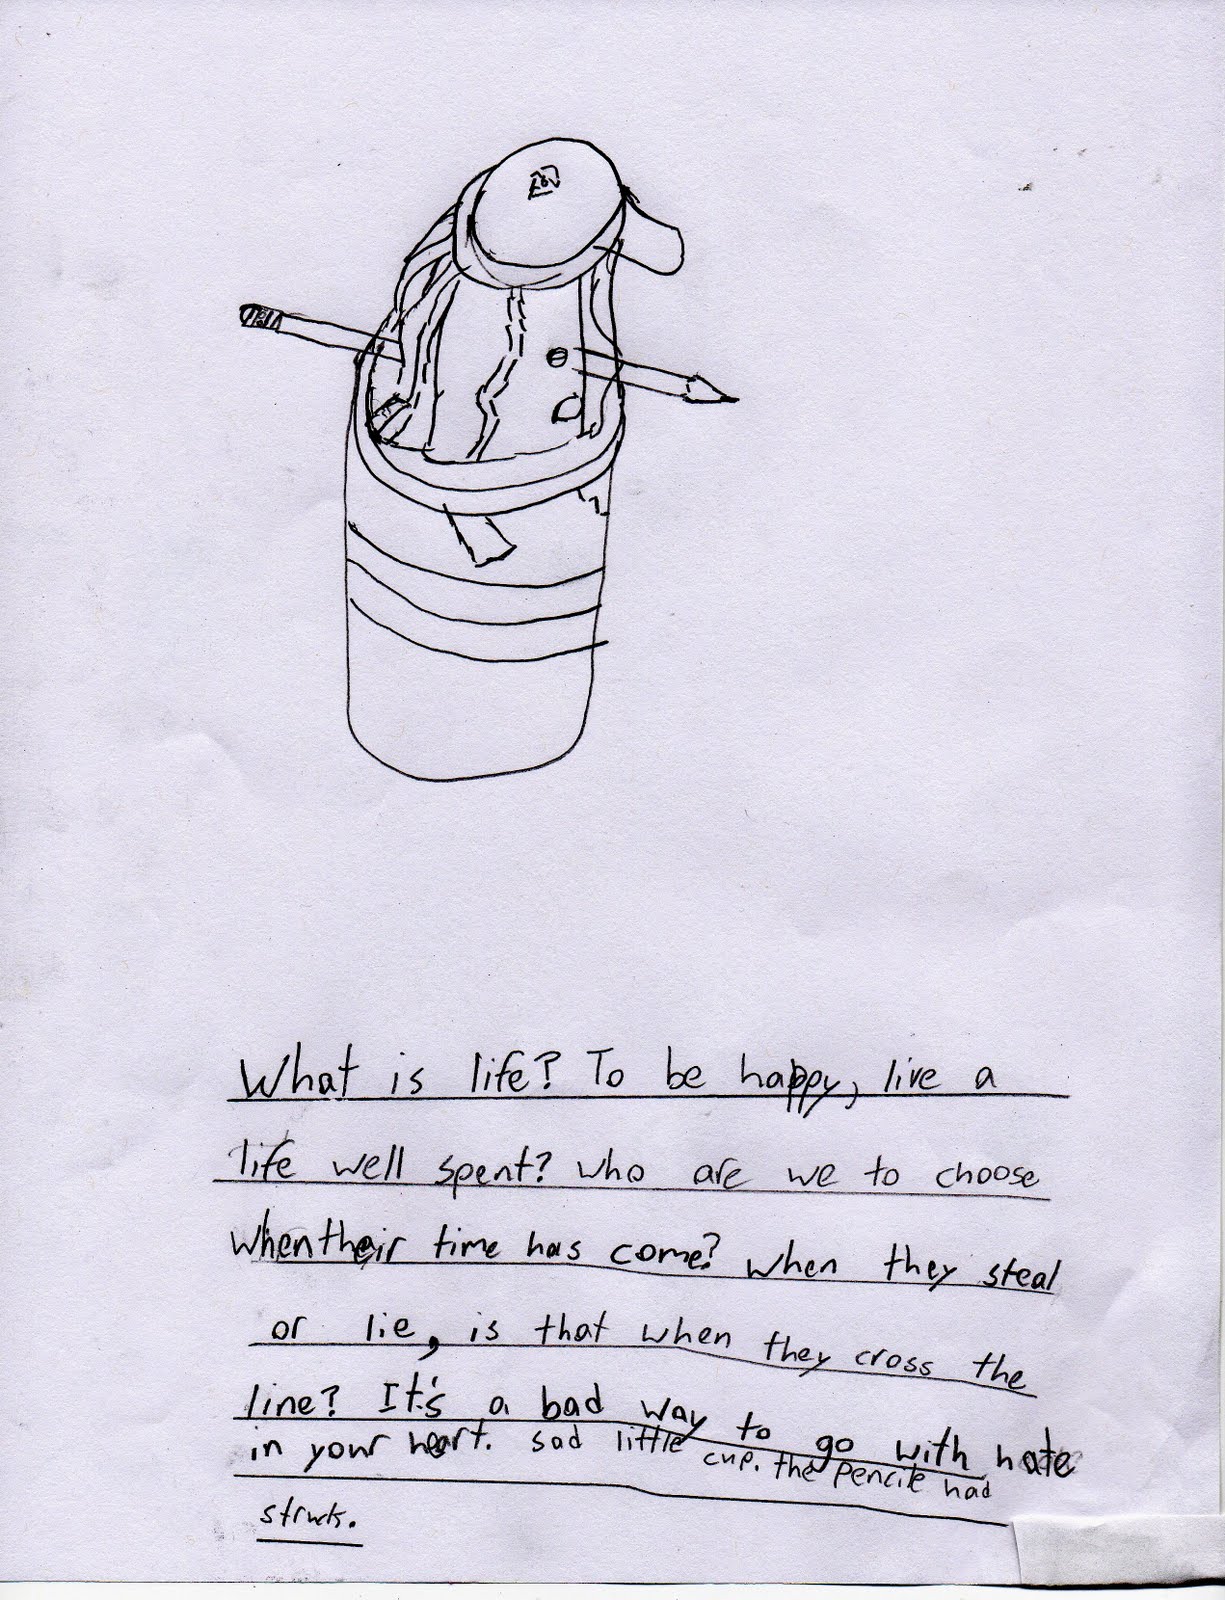 What is life? To be happy, live a
life well spent? who are we to choose
when their time has come? when they steal
or lie, is that when they cross the
line? It's a bad way to go with hate
in your heart. sad little cup. the pencile had
struck.